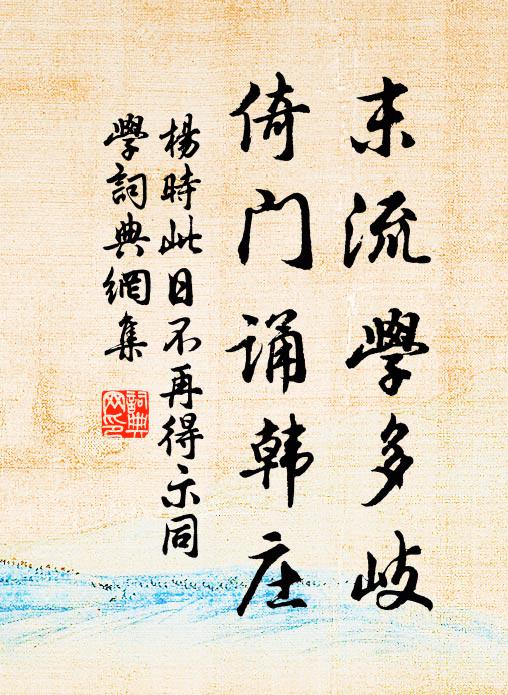 末流學多歧
倚门诵韩庄
楊時此日不再得示同
學詞典網集
詞典
网印